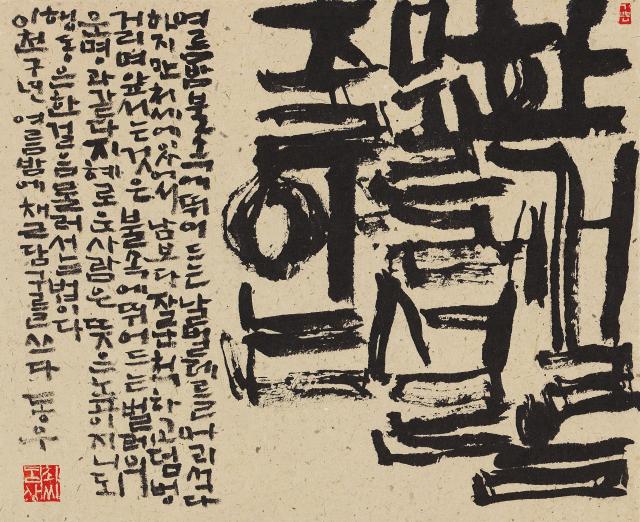 한걸음
물러설
줄아는
여름밤 뛰어드는 날벌레를 어리석다
하지만 처세에 있어서 남보다 잘난척 하고 덤벙
거리며 앞서는 것은 불속에 뛰어드는 벌레의
운명과 같다 지혜로운 사람은 뜻은 높이 지니되
행동은 한걸음 물러서는 법이다
이천구년 여름밤에 채근담 구를 쓰다